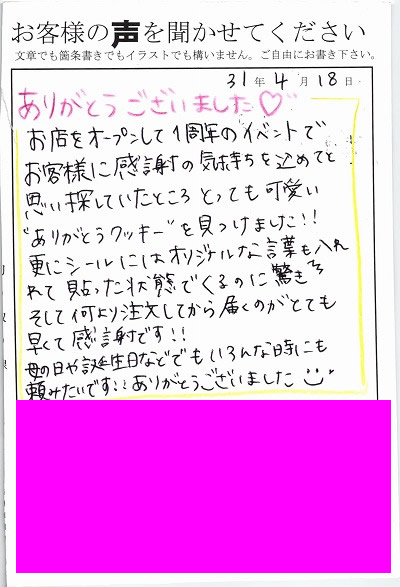 お客様の声を聞かせてください
文章でも箇条書きでもイラストでも構いません。ご自由にお書き下さい。
31年 4月 18日
ありがとうございました♡
お店をオープンして1周年のイベントで
お客様に感謝の気持ちを込めてと
思い探していたところ とっても可愛い
"ありがとうクッキー"を見つけました!!
更にシールにはオリジナルな言葉も入れ
れて貼った状態でくるのに驚き
そして何より注文してから届くのがとても
早くて感謝です!!
母の日や誕生日などでもいろんな時にも
頼みたいです!!ありがとうございました